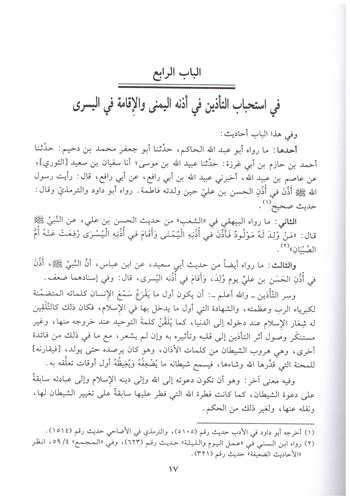 الباب الرابع
في استحباب التأذين في أذنه اليمنى والإقامة في اليسرى
وفي هذا الباب أحاديث:
أحدها: ما رواه أبو عبد الله الحاكم، حدثنا أبو جعفر محمد بن دحيم: حدثنا
أحمد بن حازم بن أبي غرزة: حدثنا عبيد الله بن موسى؛ أنا سفيان بن سعيد [الثوري]،
عن عاصم بن عبيد الله، أخبرني عبيد الله بن أبي رافع، عن أبي رافع، قال: رأيت رسول
الله ﷺ أَذَّنَ في أُذُنِ الحسن بن علي حين ولدته فاطمة. رواه أبو داود والترمذي وقال:
حديث صحيح(١).
الثاني: ما رواه البيهقي في «الشعب» من حديث الحسن بن علي، عن النَّبيِّ ﷺ
قال: «مَنْ وُلِدَ لَهُ مَوْلُودٌ فَأَذَّنَ فِي أُذُنِهِ الْيُمْنَى وَأَقَامَ فِي أُذُنِهِ الْيُسْرَى رُفِعَتْ عَنْهُ أُمُّ
الصِّبْيَانِ»(٢).
والثالث: ما رواه أيضاً من حديث أبي سعيد، عن ابن عباس، أنَّ النَّبيَّ ﷺ، أذن
في أُذُنِ الحَسَنِ بن علي يوم وُلِدَ، وَأقَامَ في أُذُنِهِ اليُسرى، قال: وفي إسنادهما ضعف.
وسر التأذين ـ والله أعلم ـ: أن يكون أول ما يَقْرَعُ سَمْعَ الإنسان كلماته المتضمنة
لكبرياء الرب وعظمته، والشهادة التي أول ما يدخل بها في الإسلام، فكان ذلك كالتلقين
له شِعَارَ الإسلام عند دخوله إلى الدنيا، كما يُلَقَّنُ كلمة التوحيد عند خروجه منها، وغير
مستنكر وصول أثر التأذين إلى قلبه وتأثيره به وإن لم يشعر، مع ما في ذلك من فائدة
أخرى، وهي هروب الشيطان من كلمات الأذان، وهو كان يرصده حتى يولد، [فيقارنه]
للمحنة التي قدرها الله وشاءها، فيسمع شيطانه ما يُضْعِفُهُ وَيُغِيظُهُ أول أوقات تعلقه به.
وفيه معنى آخر: وهو أن تكون دعوته إلى الله وإلى دينه الإسلام وإلى عبادته سابقةً
على دعوة الشيطان، كما كانت فطرة الله التي فطر عليها سابقةً على تغيير الشيطان لها،
ونقله عنها، ولغير ذلك من الحكم.
(١) أخرجه أبو داود في الأدب حديث رقم (٥١٠٥)، والترمذي في الأضاحي حديث رقم (١٥١٤).
(٢) رواه ابن السني في «عمل اليوم والليلة» حديث رقم (٦٢٣)، وفي «المجمع» ٥٩/٤، انظر
«الأحاديث الضعيفة» حديث رقم (٣٢١).
١٧